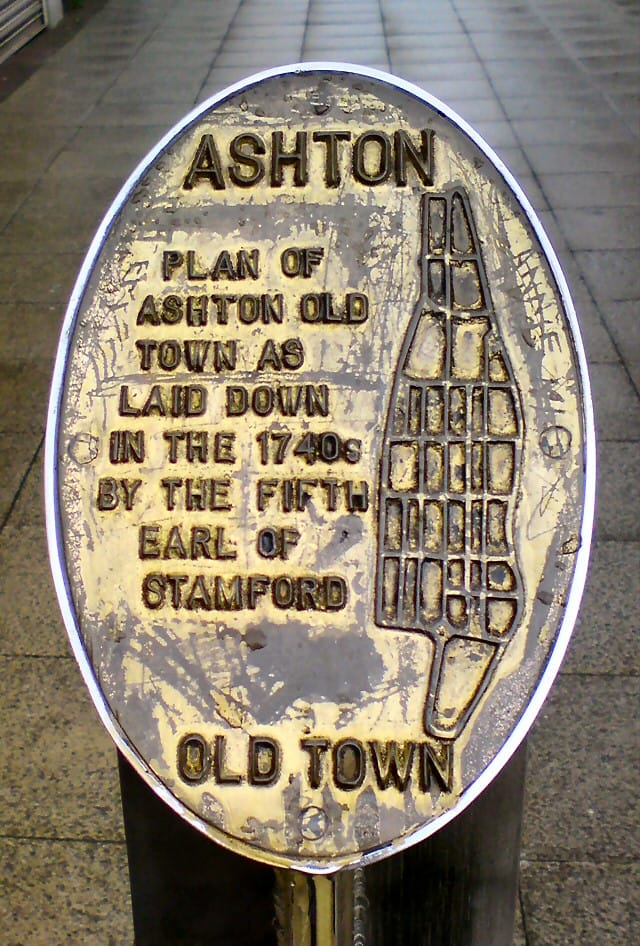 ASHTON
PLAN OF
ASHTON OLD
TOWN AS
LAID DOWN
IN THE 1740s
BY THE FIFTH
EARL OF
STAMFORD
OLD TOWN